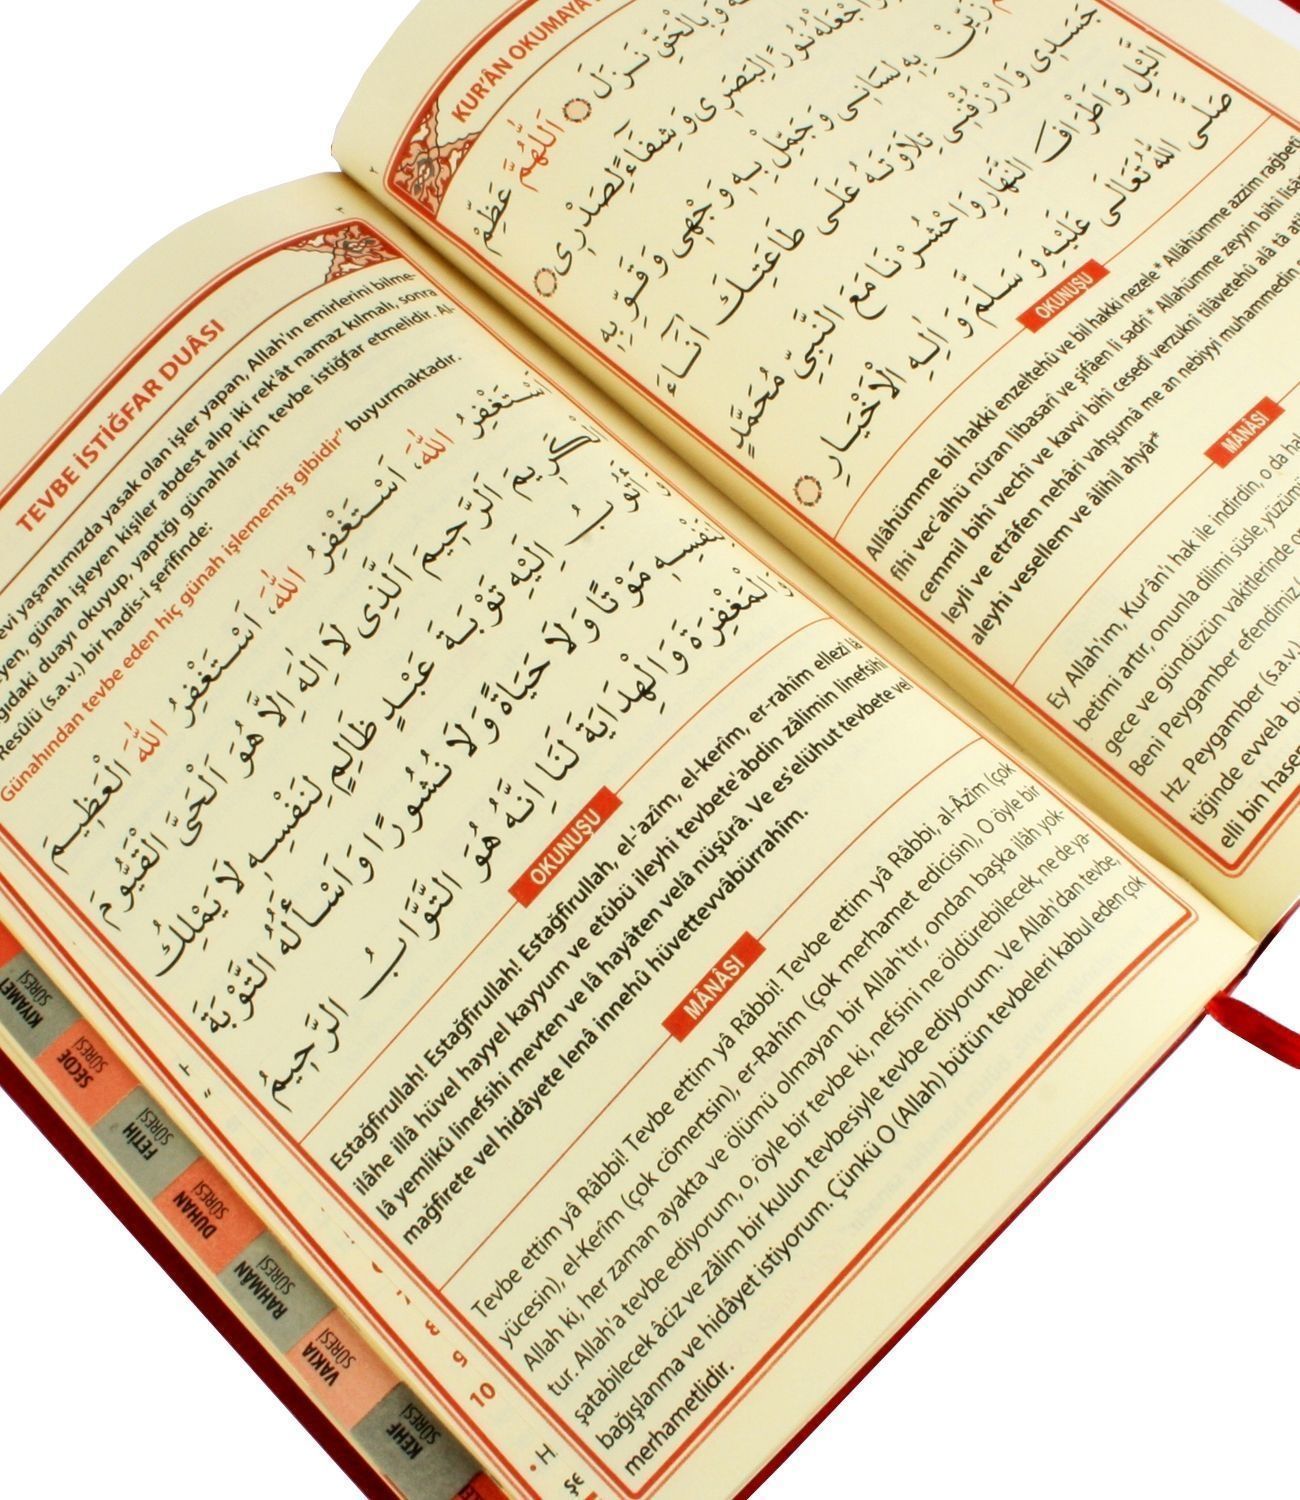 TEVBE İSTİĞFAR DUÂSI
evi yaşantımızda yasak olan işler yapan, Allah'ın emirlerini bilme-
yen, günah işleyen kişiler abdest alıp iki rek'ât namaz kılmalı, sonra
duayı okuyup, yaptığı günahlar için tevbe istiğfar etmelidir. Al-
Resûlü (s.a.v.) bir hadis-i şerifinde:
Günahından tevbe eden hiç günah işlememiş gibidir" buyurmaktadır.
اَسْتَغْفِرُ اللّٰهَ، اَسْتَغْفِرُ اللّٰهَ، اَسْتَغْفِرُ اللّٰهَ الْعَظِيمَ
الْكَرِيمَ اَلرَّحِيمَ اَلَّذِى لَا اِلٰهَ اِلَّا هُوَ اَلْحَىَّ الْقَيُّومَ
وَاَتُوبُ اِلَيْهِ تَوْبَةَ عَبْدٍ ظَالِمٍ لِنَفْسِهِ لَا يَمْلِكُ
لِنَفْسِهِ مَوْتًا وَلَا حَيَاةً وَلَا نُشُورًا وَاَسْأَلُهُ التَّوْبَةَ
وَالْمَغْفِرَةَ وَالْهِدَايَةَ لَنَا اِنَّهُ هُوَ التَّوَّابُ الرَّحِيمُ
OKUNUŞU
Estağfirullah! Estağfirullah! Estağfirullah, el-'azîm, el-kerîm, er-rahîm ellezî lâ
ilâhe illâ hüvel hayyel kayyum ve etûbü ileyhi tevbete'abdin zâlimin linefsihî
lâ yemlikû linefsihi mevten ve lâ hayâten velâ nüşûrâ. Ve es'elühut tevbete vel
mağfirete vel hidâyete lenâ innehû hüvettevvâbürrahîm.
MÂNÂSI
Tevbe ettim yâ Râbbi! Tevbe ettim yâ Râbbi! Tevbe ettim yâ Râbbi, al-Âzîm (çok
yücesin), el-Kerîm (çok cömertsin), er-Rahîm (çok merhamet edicisin), O öyle bir
Allah ki, her zaman ayakta ve ölümü olmayan bir Allah'tır, ondan başka ilâh yok-
tur. Allah'a tevbe ediyorum, o, öyle bir tevbe ki, nefsini ne öldürebilecek, ne de ya-
şatabilecek âciz ve zâlim bir kulun tevbesiyle tevbe ediyorum. Ve Allah'dan tevbe,
bağışlanma ve hidâyet istiyorum. Çünkü O (Allah) bütün tevbeleri kabul eden çok
merhametlidir.
KIYAMET SÛRESİ
SECDE SÛRESİ
FETİH SÛRESİ
DUHAN SÛRESİ
RAHMÂN SÛRESİ
VAKIA SÛRESİ
KEHF SÛRESİ
10
KUR'ÂN OKUMAYA
وَبِالْحَقِّ نَزَلَ اَللّٰهُمَّ عَظِّمْ
وَاجْعَلْهُ نُورًا لِبَصَرِى وَشِفَاءً لِصَدْرِى
زَيِّنْ بِهِ لِسَانِى وَجَمِّلْ بِهِ وَجْهِى وَقَوِّ بِهِ
جَسَدِى وَارْزُقْنِى تِلَاوَتَهُ عَلَى طَاعَتِكَ اٰنَاءَ
الَّيْلِ وَاَطْرَافَ النَّهَارِ وَاحْشُرْنَا مَعَ النَّبِىِّ مُحَمَّدٍ
صَلَّى اللّٰهُ تَعَالَى عَلَيْهِ وَسَلَّمَ وَاٰلِهِ الْاَخْيَارِ
OKUNUŞU
Allâhümme bil hakki enzeltehû ve bil hakki nezele* Allâhümme azzim rağbetî
fîhi vec'alhü nûran libasarî ve şifâen li sadrî* Allahümme zeyyin bihi lisâ
cemmil bihî vechi ve kavvi bihî cesedî verzuknî tilâvetehû alâ tâ ati
leyli ve etrâfen nehâri vahşurnâ me an nebiyyi muhammedin
aleyhi vesellem ve âlihil ahyâr*
MÂNÂSI
Ey Allah'ım, Kur'ân'ı hak ile indirdin, o da hal
betimi artır, onunla dilimi süsle, yüzümü
gece ve gündüzün vakitlerinde
Beni Peygamber efendimiz (
Hz. Peygamber (s.a.v.)
tiğinde evvela bu
elli bin hasen